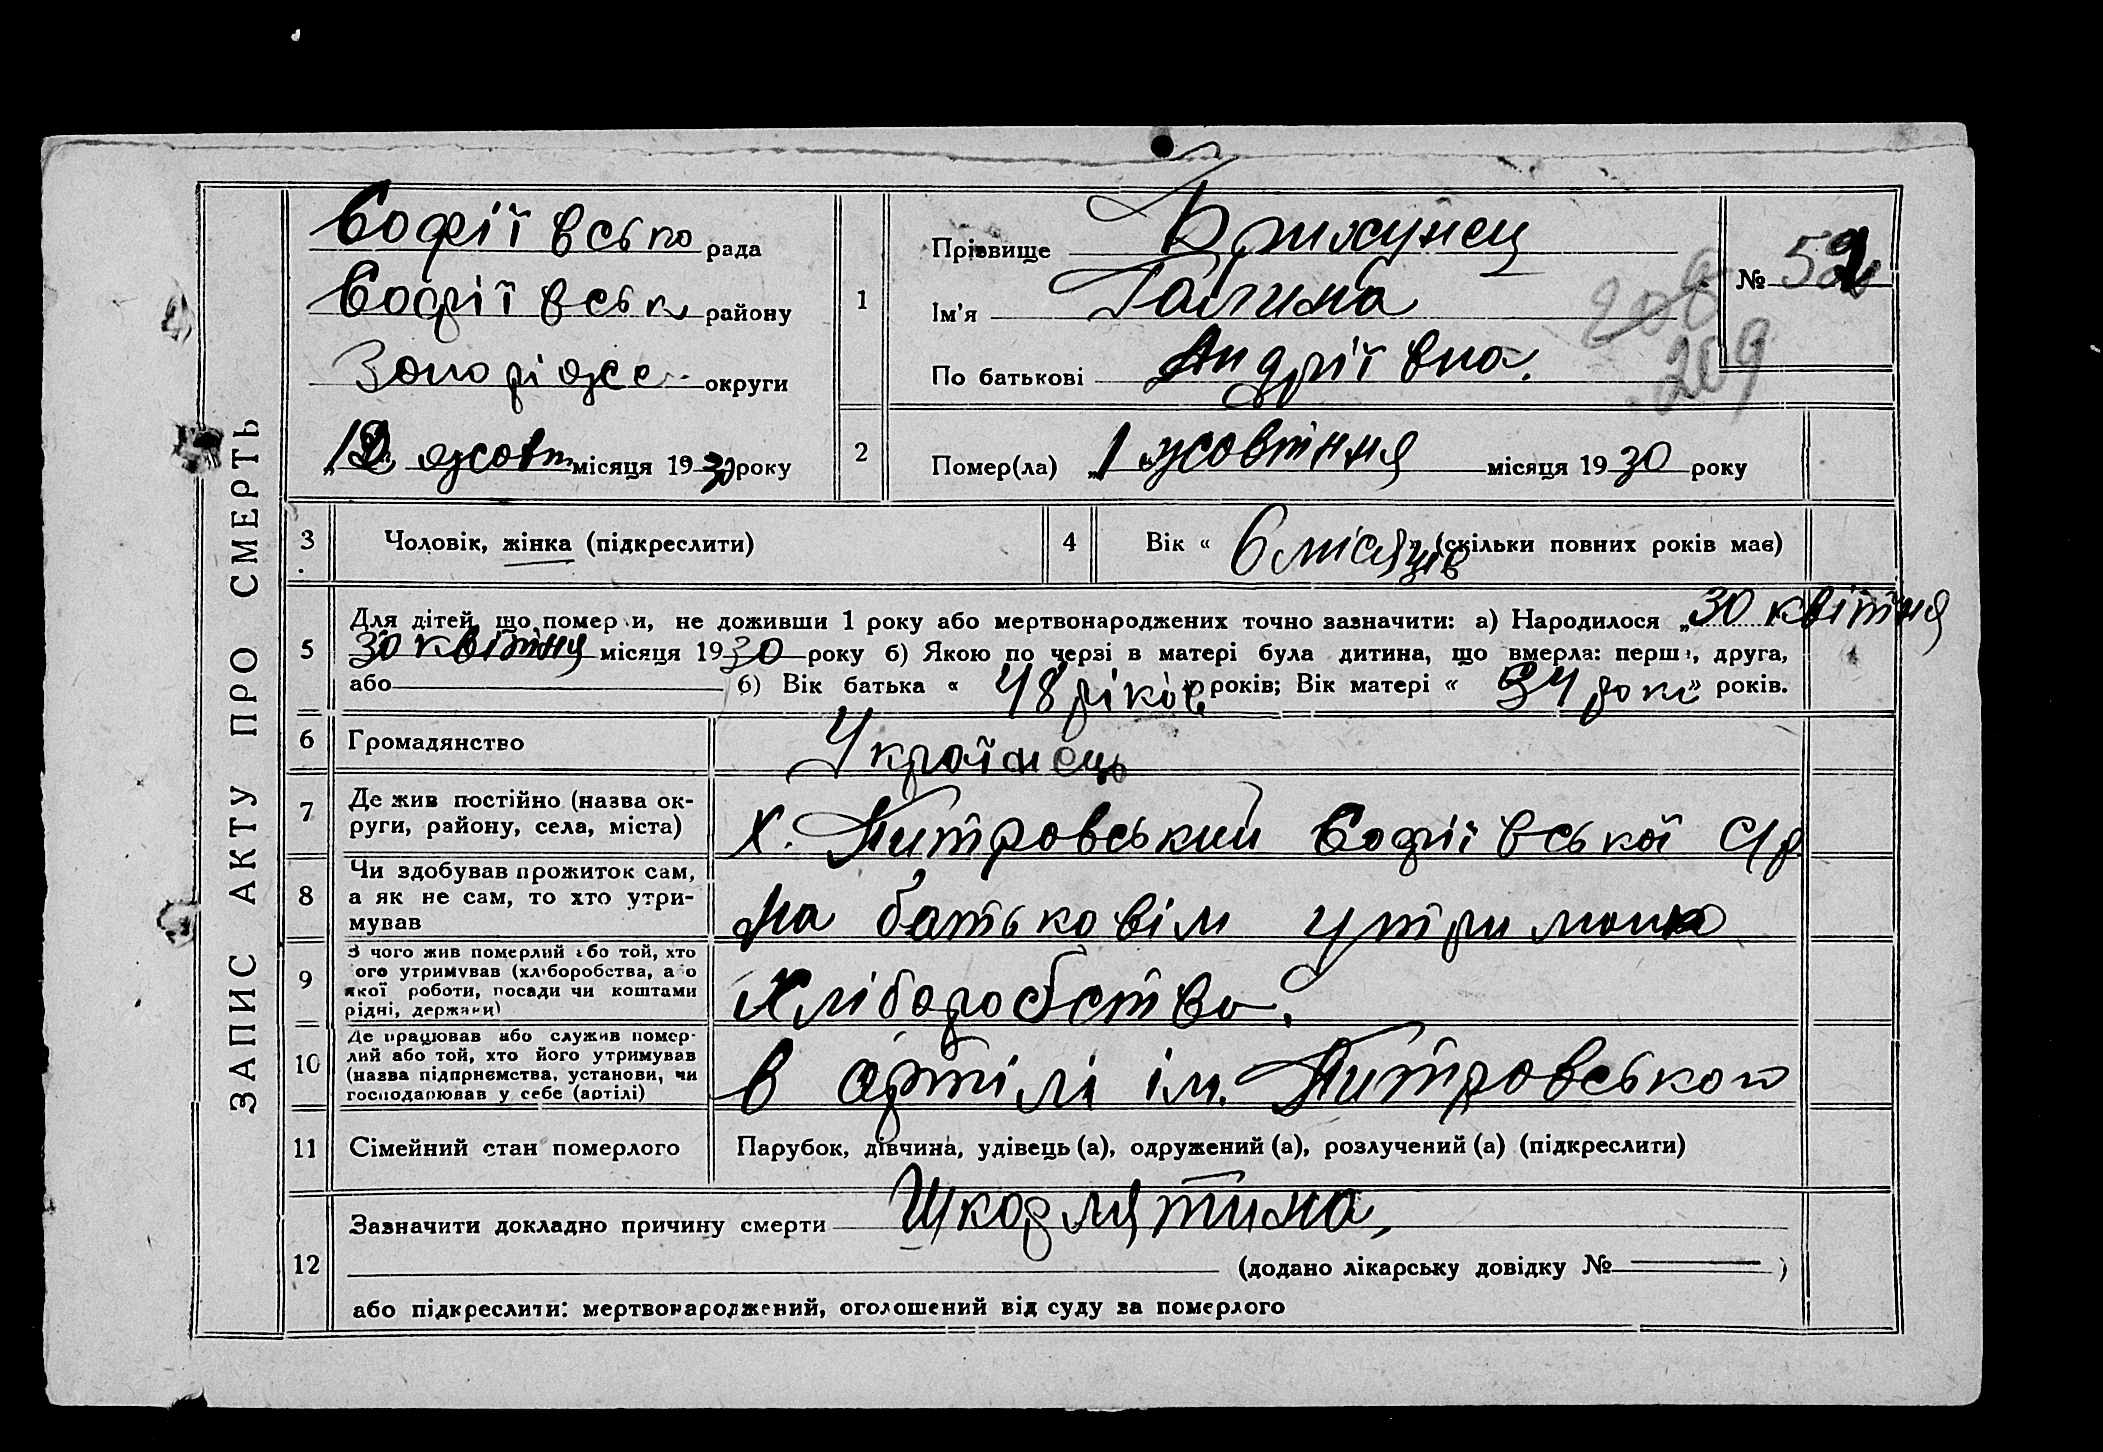 ЗАПИС АКТУ ПРО СМЕРТЬ
Софіївсько рада
Софіївськ району
Запоріжс округи
"12" жовт місяця 1930 року
1
Прізвище Брихунец
Ім'я Галина
По батькові Андріївна.
№ 52
206
209
2
Помер(ла) "1" жовтння місяця 1930 року
3
Чоловік, жінка (підкреслити)
4
Вік « 6 місяців » (скільки повних років має)
5
Для дітей, що помер и, не доживши 1 року або мертвонароджених точно зазначити: а) Народилося „ 30 квітня
30 квітня місяця 1930 року б) Якою по черзі в матері була дитина, що вмерла: перша, друга,
або б) Вік батька « 48 рікоє » років; Вік матері « 34 роки » років.
6
Громадянство
Українець
7
Де жив постійно (назва ок-
руги, району, села, міста)
Х. Питровський Софіївської с/р
8
Чи здобував прожиток сам,
а як не сам, то хто утри-
мував
На батьковім утриманю
9
З чого жив померлий або той, хто
ого утримував (хліборобства, або
якої роботи, посади чи коштами
рідні, держави)
Хліборобство.
10
Де працював або служив помер-
лий або той, хто його утримував
(назва підпрнємства, установи, чи
господарював у себе (артілі)
в артілі ім. Питровського
11
Сімейний стан померлого
Парубок, дівчина, удівець (а), одружений (а), розлучений (а) (підкреслити)
12
Зазначити докладно причину смерти Шкорлятина,
(додано лікарську довідку № )
або підкреслити: мертвонароджений, оголошений від суду за померлого